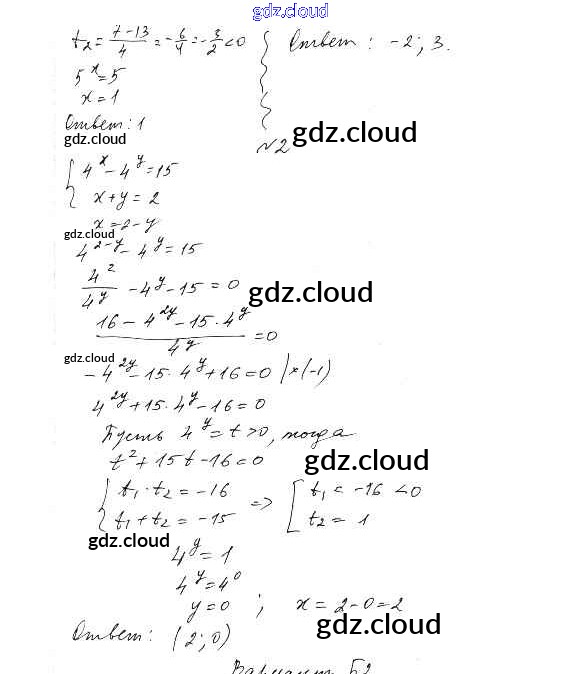 gdz.cloud
t₂ = (7-13)/4 = -6/4 = -3/2 < 0
5^x = 5
x = 1
Ответ: 1
gdz.cloud
Ответ: -2; 3.
gdz.cloud
№2
{ 4^x - 4^y = 15
x + y = 2
x = 2 - y
gdz.cloud
4^(2-y) - 4^y = 15
4²/4^y - 4^y - 15 = 0
gdz.cloud
(16 - 4^(2y) - 15·4^y)/4^y = 0
gdz.cloud
-4^(2y) - 15·4^y + 16 = 0 | ×(-1)
4^(2y) + 15·4^y - 16 = 0
Пусть 4^y = t > 0, тогда
t² + 15t - 16 = 0
gdz.cloud
{ t₁·t₂ = -16 => [ t₁ = -16 < 0
t₁ + t₂ = -15 t₂ = 1
gdz.cloud
4^y = 1
4^y = 4^0
y = 0 ; x = 2-0 = 2
gdz.cloud
Ответ: (2; 0)
Вариант 52